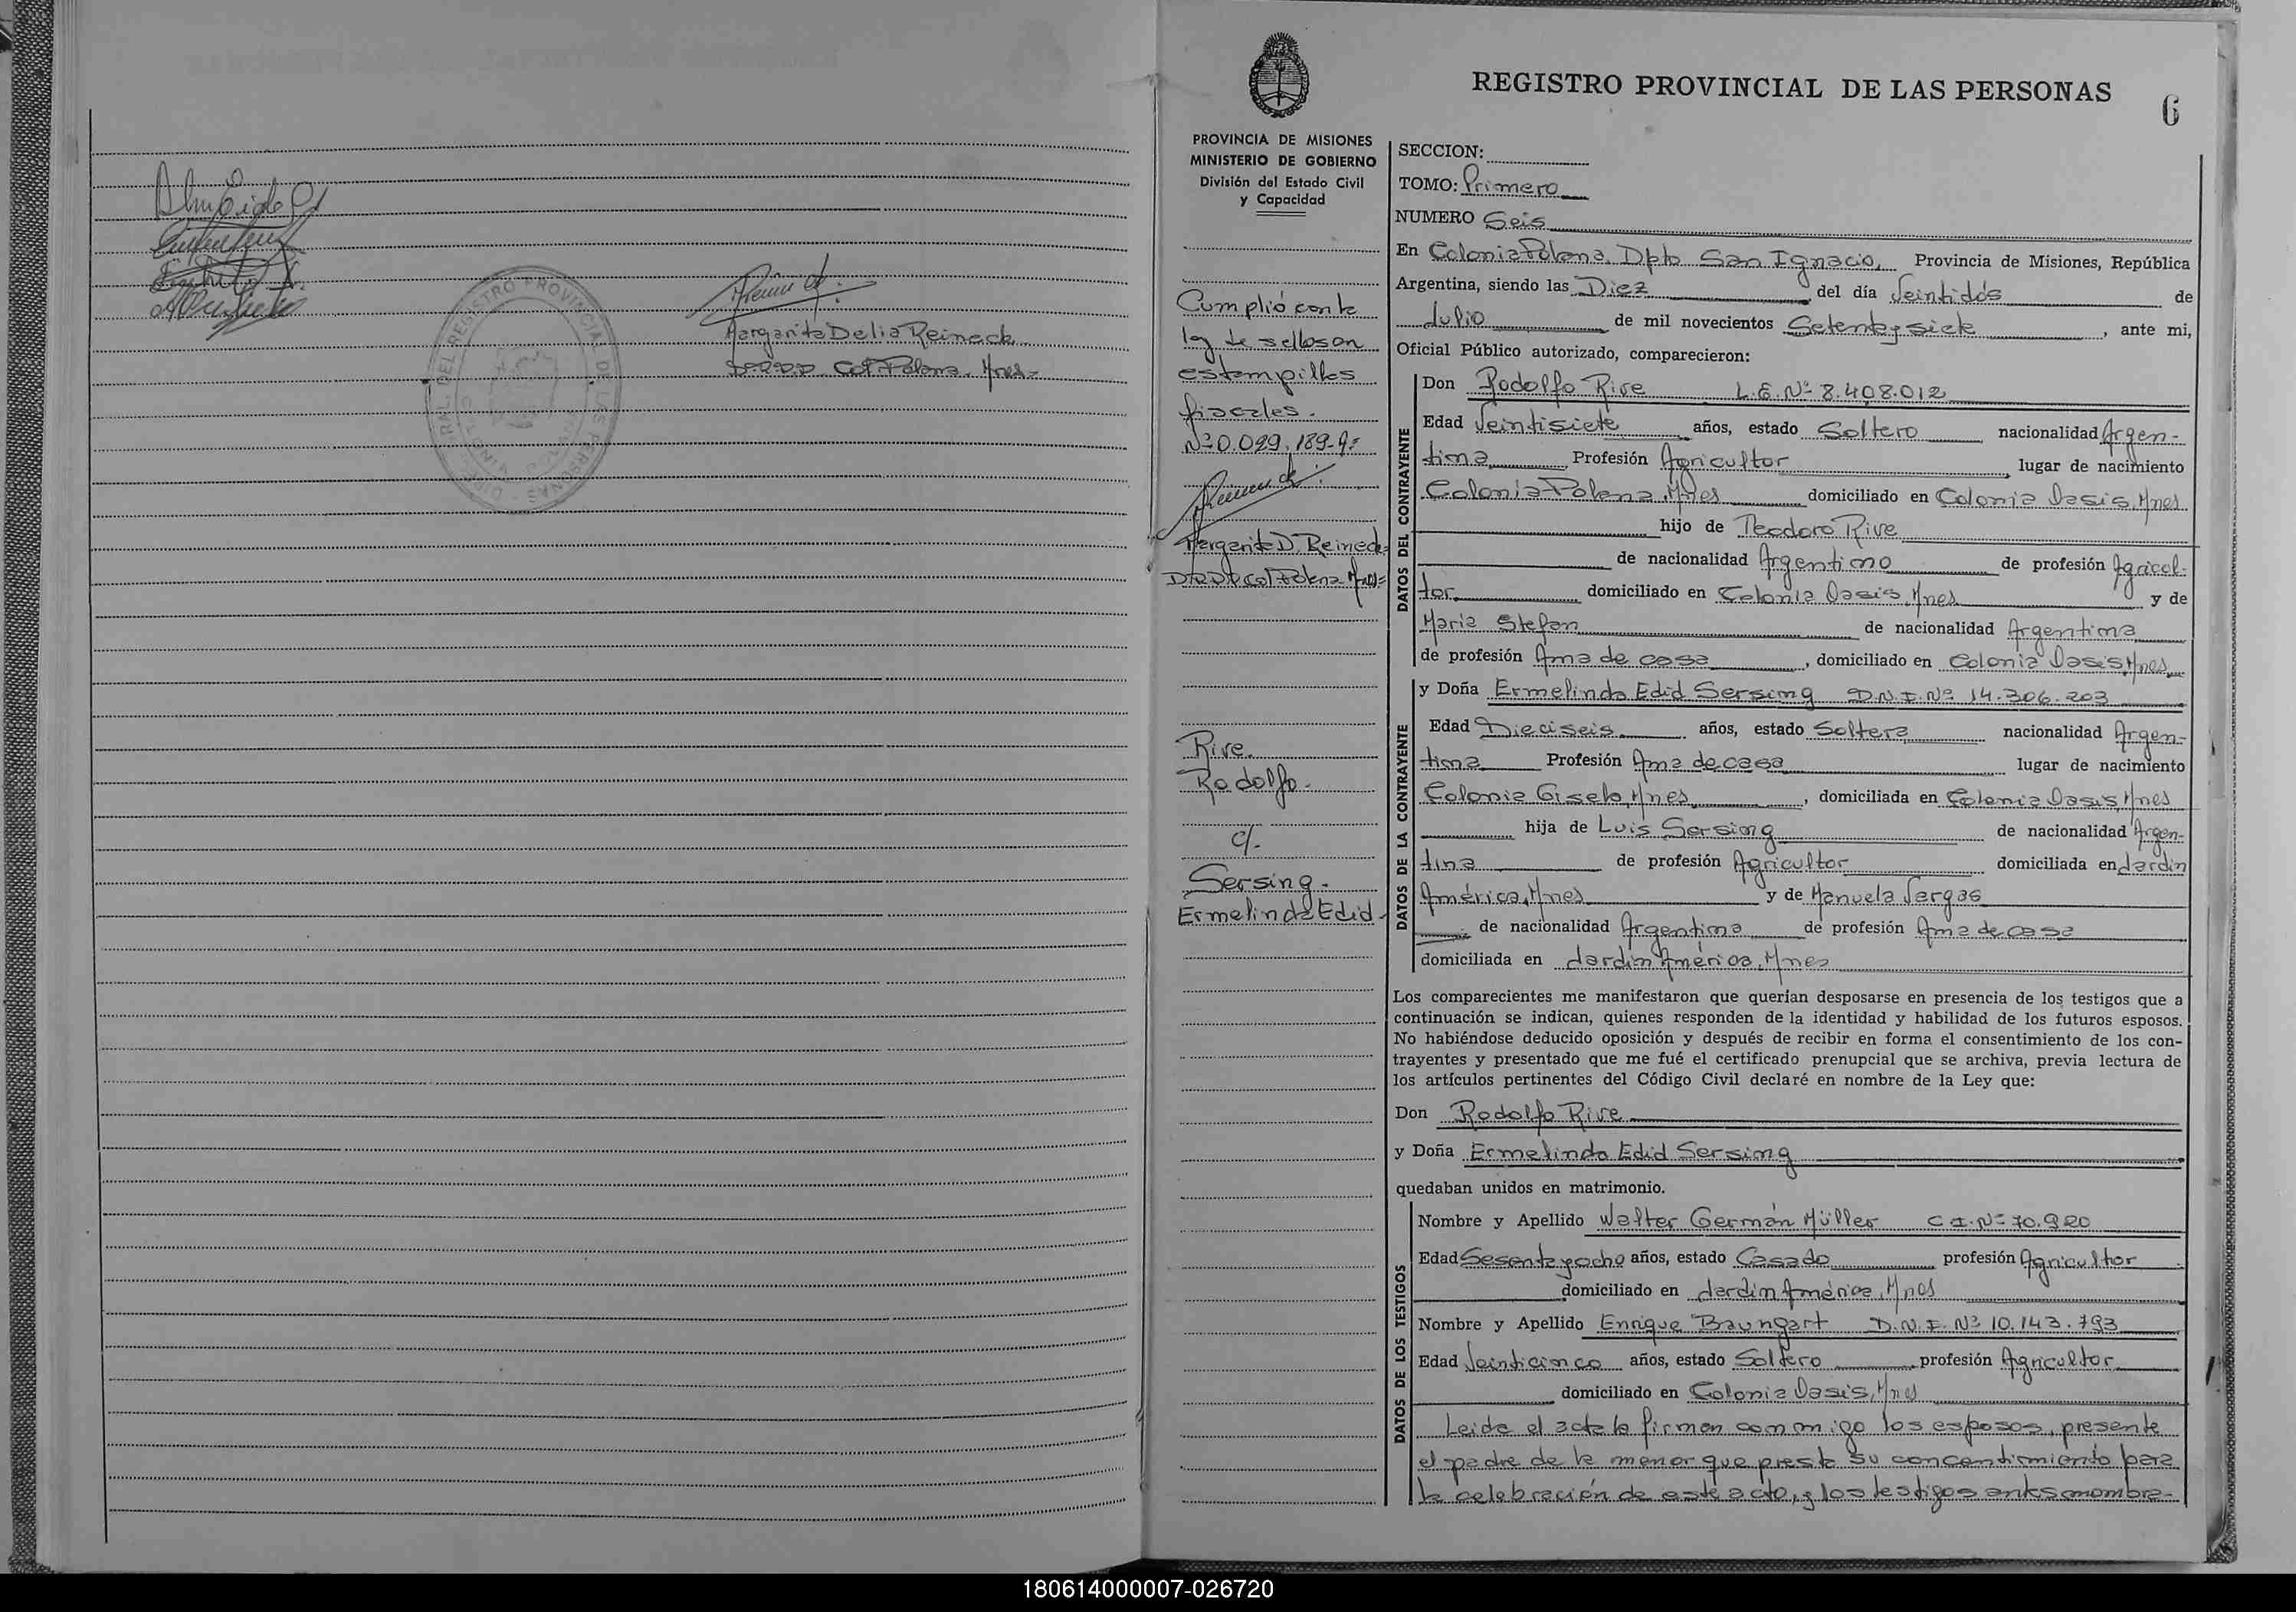 Margarita Delia Reineck
D.R.P.P. Col Polana. Mnes=
DEL REGISTRO PROVINCIAL DE LAS PERSONAS
REGISTRO PROVINCIAL DE LAS PERSONAS
6
PROVINCIA DE MISIONES
MINISTERIO DE GOBIERNO
División del Estado Civil
y Capacidad
Cumplió con la
ley de sellos en
estampillas
fiscales.
Nº 0.099.189-9=
Margarita D. Reineck
D.R.P.P. Col Polana Mnes=
Rive.
Rodolfo.
c/.
Sersing.
Ermelinda Edid.
SECCION:
TOMO: Primero
NUMERO Seis
En Colonia Polana, Dpto San Ignacio, Provincia de Misiones, República
Argentina, siendo las Diez del día Veintidós de
Julio de mil novecientos Setenta y siete, ante mi,
Oficial Público autorizado, comparecieron:
DATOS DEL CONTRAYENTE
Don Rodolfo Rive L.E. Nº 8.408.012
Edad Veintisiete años, estado Soltero nacionalidad Argen-
tina Profesión Agricultor lugar de nacimiento
Colonia Polana, Mnes domiciliado en Colonia Oasis, Mnes
hijo de Teodoro Rive
de nacionalidad Argentino de profesión Agricul-
tor domiciliado en Colonia Oasis, Mnes y de
Maria Stefan de nacionalidad Argentina
de profesión Ama de casa, domiciliado en Colonia Oasis, Mnes
DATOS DE LA CONTRAYENTE
y Doña Ermelinda Edid Sersing D.N.I. Nº 14.306.203
Edad Dieciseis años, estado Soltera nacionalidad Argen-
tina Profesión Ama de casa lugar de nacimiento
Colonia Gisela, Mnes, domiciliada en Colonia Oasis, Mnes
hija de Luis Sersing de nacionalidad Argen-
tina de profesión Agricultor domiciliada en Jardin
América, Mnes y de Manuela Vargas
de nacionalidad Argentina de profesión Ama de casa
domiciliada en Jardin América, Mnes
Los comparecientes me manifestaron que querian desposarse en presencia de los testigos que a
continuación se indican, quienes responden de la identidad y habilidad de los futuros esposos.
No habiéndose deducido oposición y después de recibir en forma el consentimiento de los con-
trayentes y presentado que me fué el certificado prenupcial que se archiva, previa lectura de
los artículos pertinentes del Código Civil declaré en nombre de la Ley que:
Don Rodolfo Rive
y Doña Ermelinda Edid Sersing
quedaban unidos en matrimonio.
DATOS DE LOS TESTIGOS
Nombre y Apellido Walter Germán Müller C I. Nº 70.920
Edad Sesenta y ocho años, estado Casado profesión Agricultor
domiciliado en Jardin América, Mnes
Nombre y Apellido Enrique Baungart D.N.I. Nº 10.143.793
Edad Veinticinco años, estado Soltero profesión Agricultor
domiciliado en Colonia Oasis, Mnes
Leida el acta la firman conmigo los esposos, presente
el padre de la menor que presta su concentimiento para
la celebración de este acto, y los testigos antes nombra-
180614000007-026720